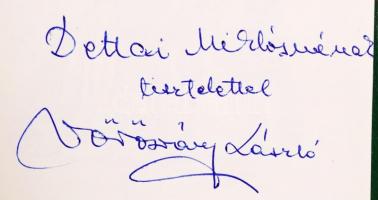 Dettai Miklósnénak
tisztelettel
Vörösváry László